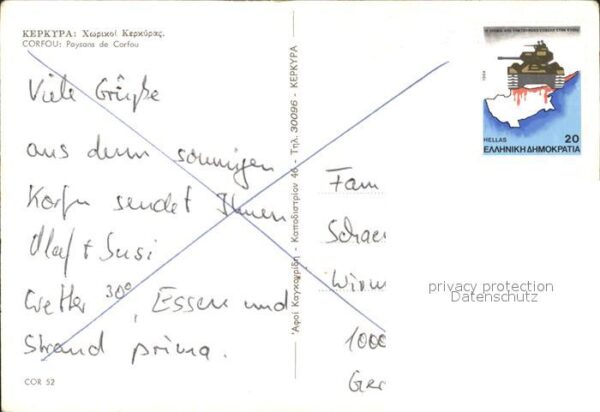 ΚΕΡΚΥΡΑ: Χωρικοί Κερκύρας.
CORFOU: Paysans de Corfou
Viele Grüße
aus dem sonnigen
Korfu sendet Ihnen
Olaf + Susi
Wetter 30°, Essen und
Strand prima.
COR 52
Ἀφοί Καγκαρίδη - Καποδιστρίου 46 - Τηλ. 30096 - ΚΕΡΚΥΡΑ
1984
HELLAS 20
ΕΛΛΗΝΙΚΗ ΔΗΜΟΚΡΑΤΙΑ
Fam
Schae
1000
Ger
privacy protection
Datenschutz